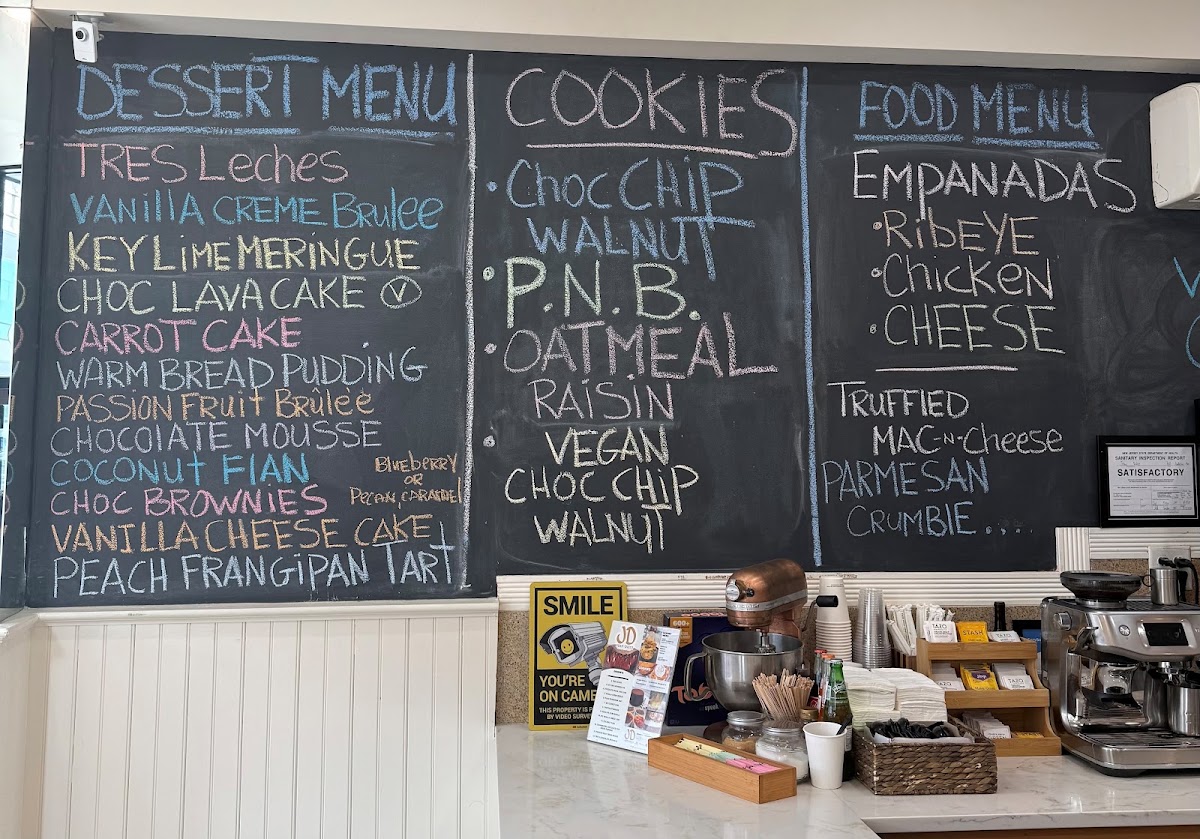 DESSERT MENU
TRES Leches
VANillA CREME Brulee
KEY LiME MERINGUE
CHOC LAVA CAKE
CARROT CAKE
WARM BREAD PUDDiNG
PASSION FRuit BRûleè
CHOCOlATE MOUSSE
COCONut FlAN
CHOC BROWNIES
BluebeRRY
OR
Pecan, CARAmel
VANILLA CHEESE CAKE
PEACH FRANGiPAN TART
COOKiES
• CHOC CHiP
WALNUT
• P.N.B.
• OATMEAL
RAiSiN
• VEGAN
CHOC CHiP
WALNUT
FOOD MENU
EMpANADAS
• RibEYE
• Chicken
• CHEESE
TRUFFlED
MAC-N-Cheese
PARMESAN
CRUMBlE....
SATISFACTORY
SMILE
YOU'RE
ON CAME
THIS PROPERTY IS P
BY VIDEO SURVE
JD
JD
600+
TAZO
STASH
TAZO
TAZO
TAZO